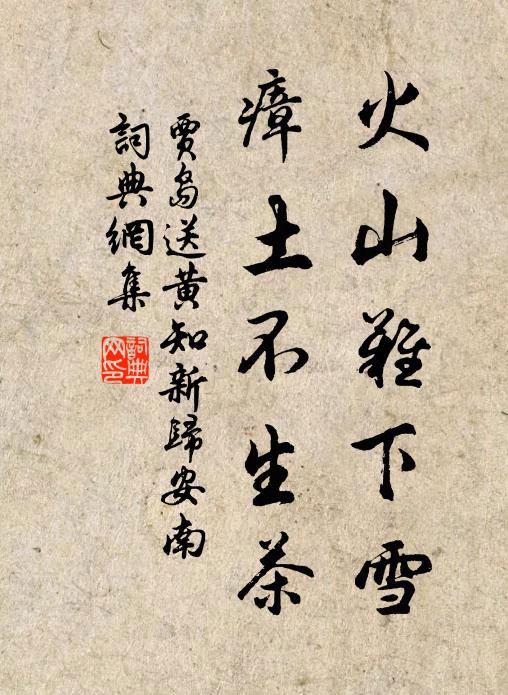 火山難下雪
瘴土不生茶
賈島送黄知新歸安南
詞典網集
詞典
网印